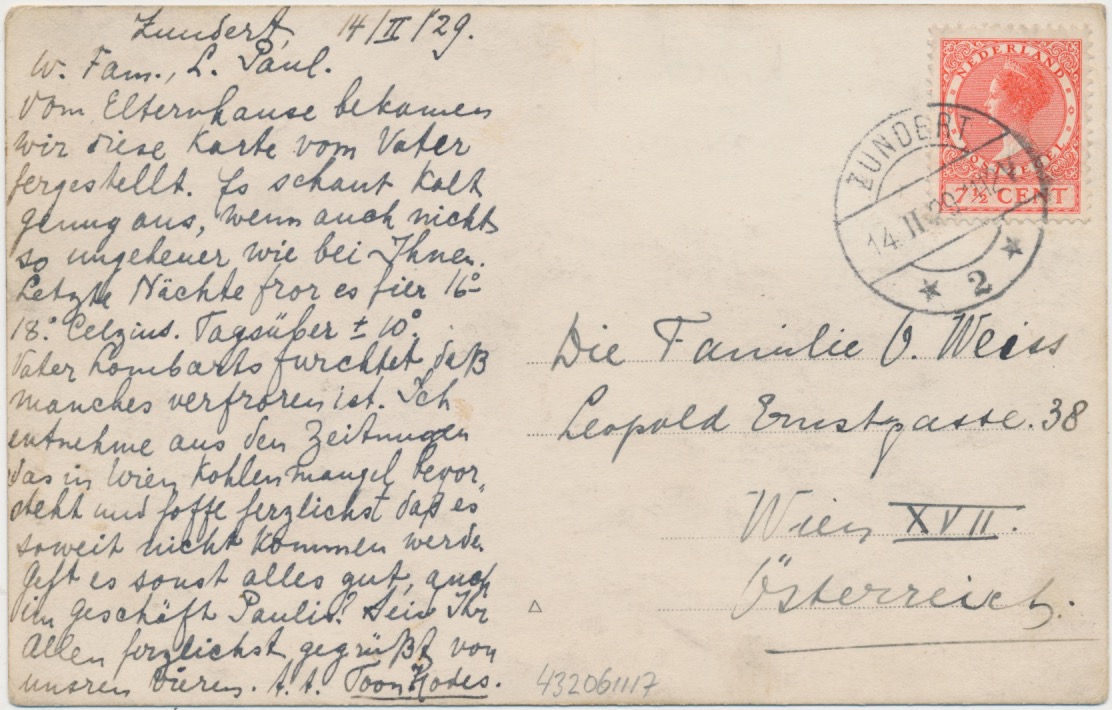 Zundert, 14/II/'29.
W. Fam., L. Paul.
Vom Elternhause bekamen
wir diese Karte vom Vater
hergestellt. Es schaut kalt
genug aus, wenn auch nicht
so ungeheuer wie bei Ihnen.
Letzte Nächte fror es hier 16°
18° Celzius. Tagsüber ± 10°.
Vater Lombarts furchtet daß
manches verfroren ist. Ich
entnehme aus den Zeitungen
das in Wien Kohlenmangel bevor-
steht und hoffe herzlichst daß es
soweit nicht kommen werde.
Geht es sonst alles gut, auch
im geschäft Paulis? Seid Ihr
Allen herzlichst gegrüßt von
unsren Vieren. t. t. Toon
NEDERLAND
POSTZEGEL
7½ CENT
ZUNDERT
14 II 29
2
Die Familie O. Weiss
Leopold Ernstgasse. 38
Wien XVII.
Österreich.
432061117